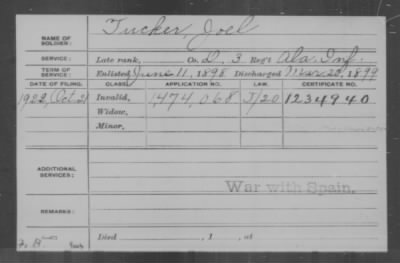 NAME OF SOLDIER: Tucker, Joel
SERVICE: Late rank, Co. D, 3 Reg't Ala. Inf.
TERM OF SERVICE: Enlisted June 11, 1898 Discharged Mar. 20, 1899
DATE OF FILING. CLASS. APPLICATION NO. LAW. CERTIFICATE NO.
1922, Oct. 21 Invalid, 1,474,068 J/20 1234940
Widow,
Minor,
ADDITIONAL SERVICES:
War with Spain.
REMARKS:
Died , 1 , at